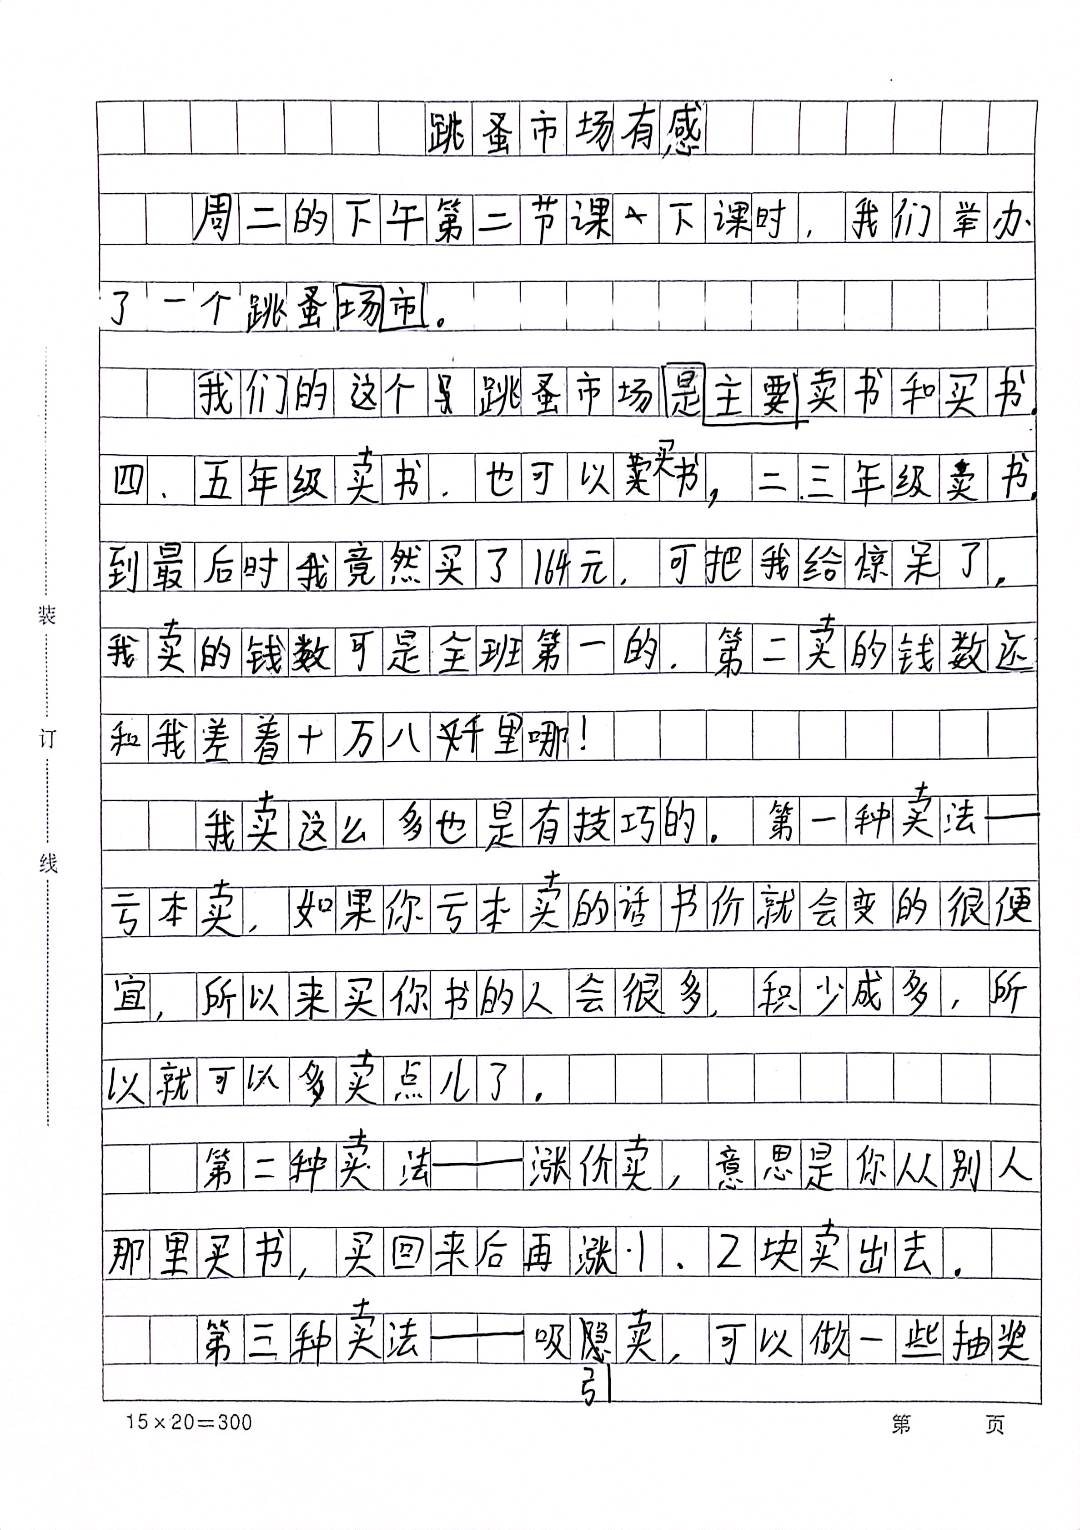 跳蚤市场有感
周二的下午第二节课下课时，我们举办
了一个跳蚤场市。
我们的这个跳蚤市场是主要卖书和买书.
四、五年级卖书.也可以买书，二.三年级卖书.
到最后时我竟然买了164元，可把我给惊呆了.
我卖的钱数可是全班第一的.第二卖的钱数还
和我差着十万八千里哪！
我卖这么多也是有技巧的.第一种卖法——
亏本卖，如果你亏本卖的话书价就会变的很便
宜，所以来买你书的人会很多，积少成多，所
以就可以多卖点儿了.
第二种卖法——涨价卖，意思是你从别人
那里买书，买回来后再涨1、2块卖出去.
第三种卖法——吸引卖，可以做一些抽奖
装
订
线
15×20=300
第 页